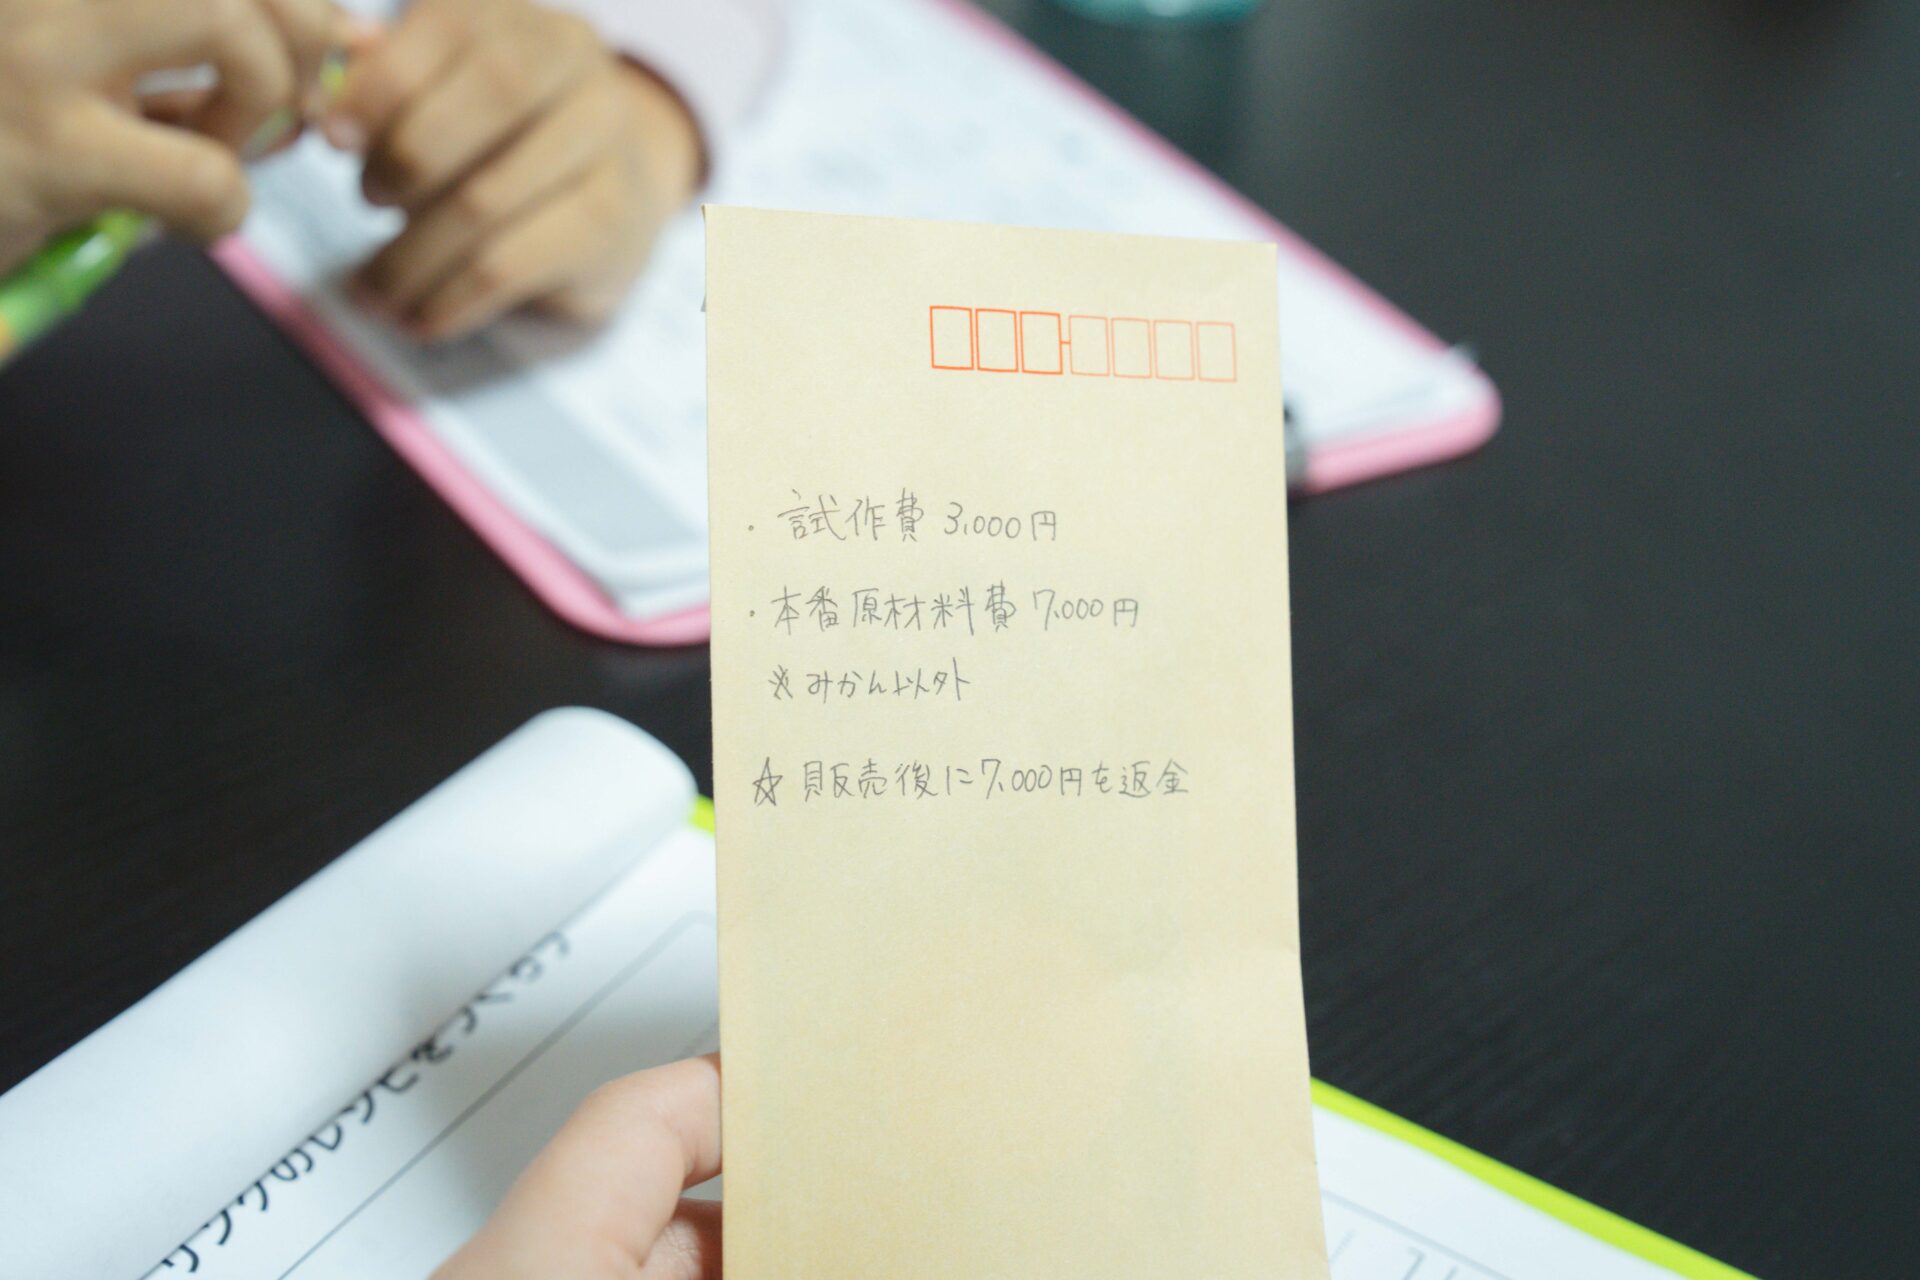 ・試作費 3,000円
・本番原材料費 7,000円
※みかん以外
☆販売後に7,000円を返金
のレシピをつくろう